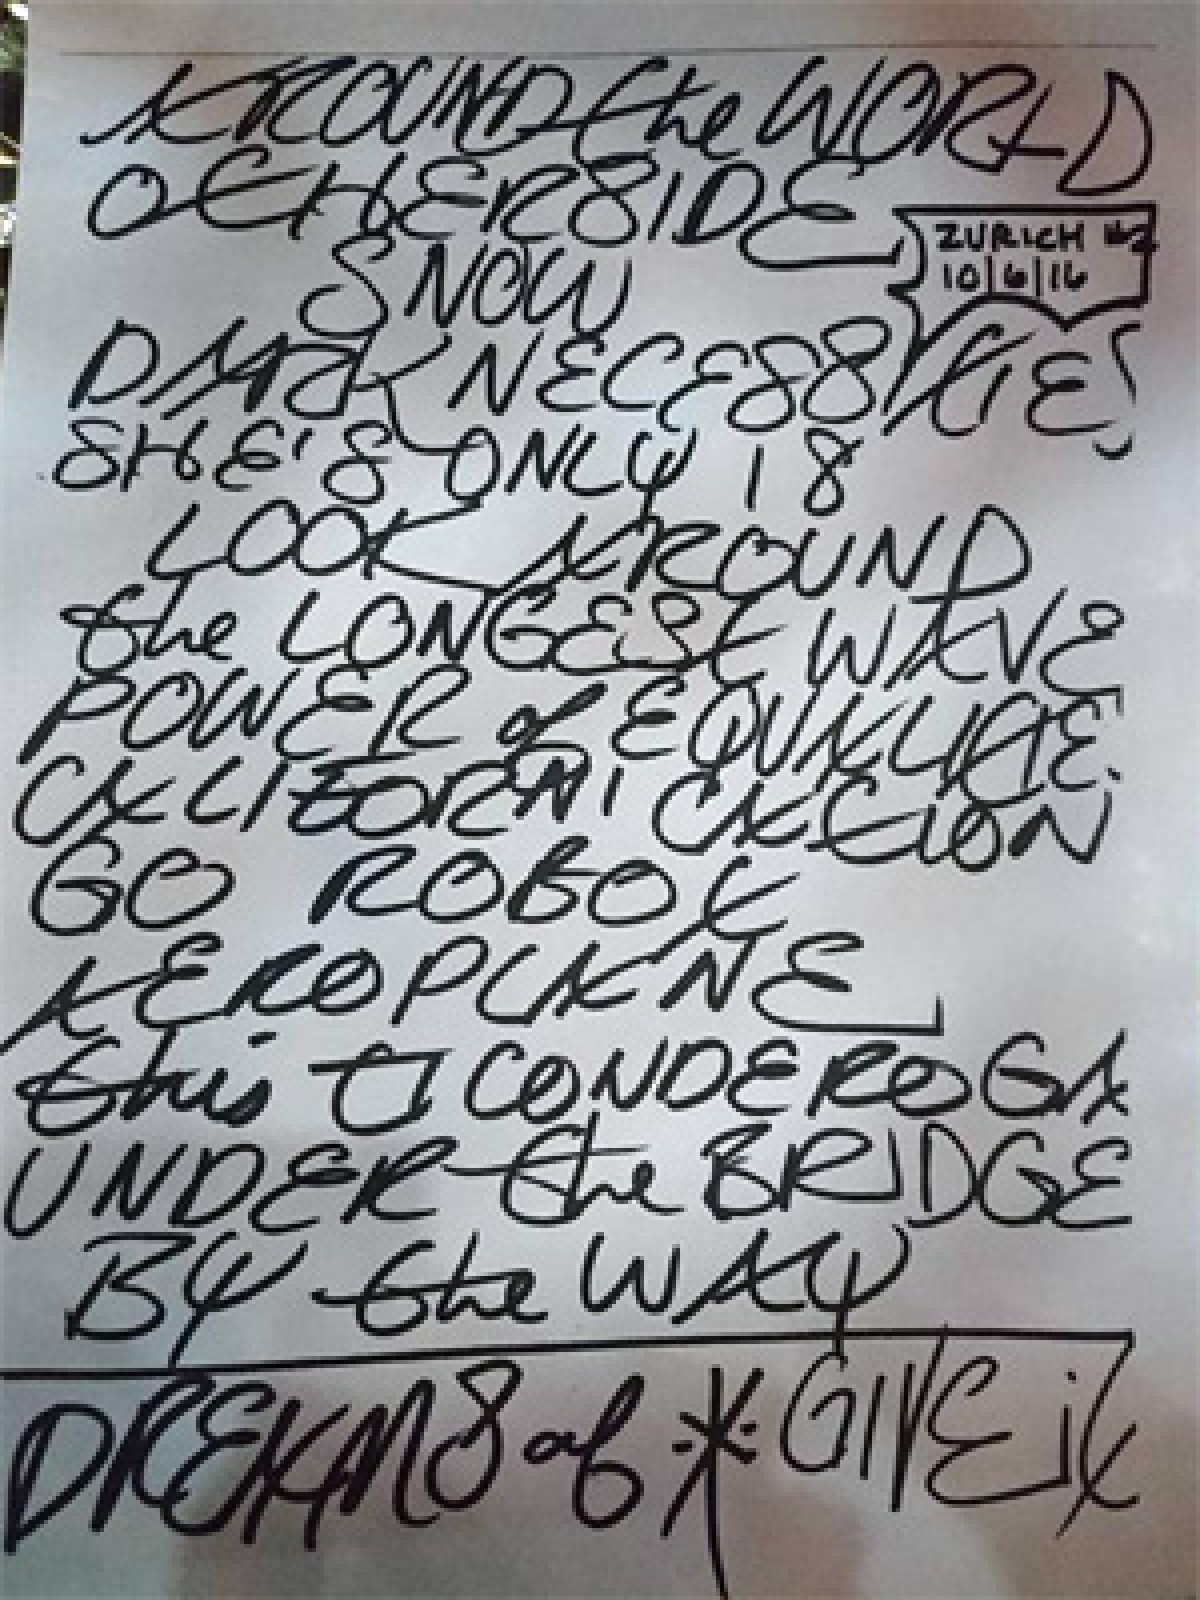 AROUND the WORLD
OTHERSIDE
ZURICH #2
10|6|16
SNOW
DARK NECESSITIES
SHE'S ONLY 18
LOOK AROUND
the LONGEST WAVE
POWER of EQUALITIE
CALIFORNICATION
GO ROBOT
AEROPLANE
this TICONDEROGA
UNDER the BRIDGE
BY the WAY
DREAMS of * GIVE it